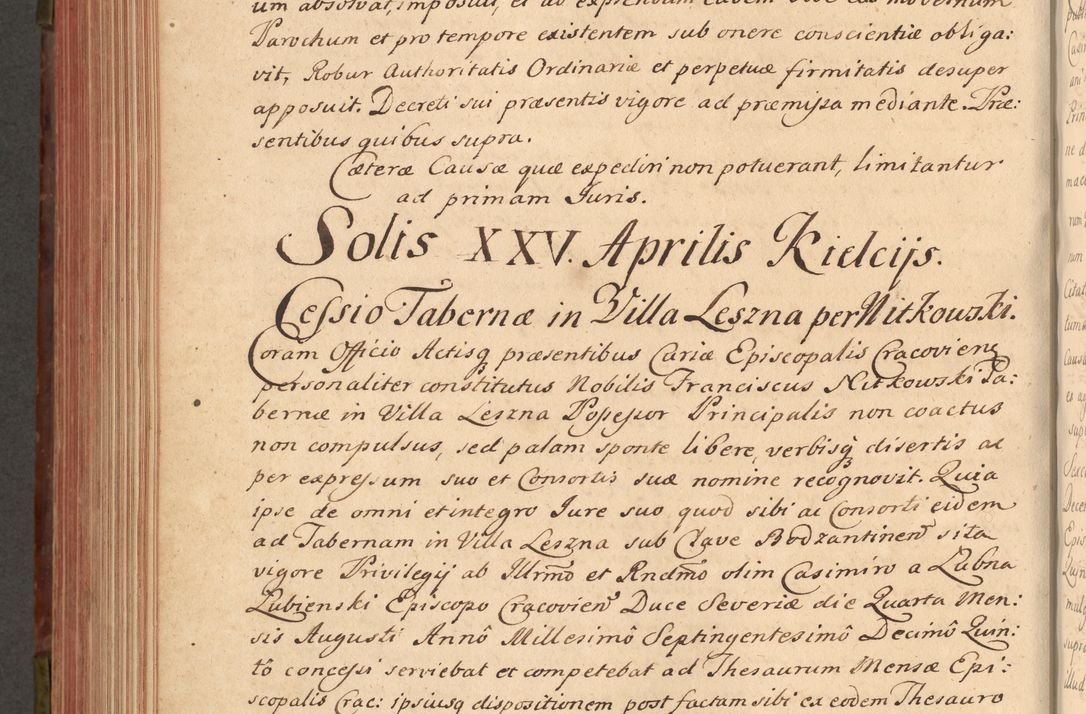 um absolvat, imposuit, et ad explendum eadem
Parochum et pro tempore existentem sub onere conscientiæ obliga:
vit, Robur Authoritatis Ordinariæ et perpetuæ firmitatis desuper
apposuit. Decreti sui præsentis vigore ad præmissa mediante. Præ:
sentibus quibus supra.
Cæteræ Causæ quæ expediri non potuerant, limitantur
ad primam Iuris.
Solis XXV. Aprilis Kielcijs.
Cessio Tabernæ in Villa Leszna per Nitkowski.
Coram Officio Actisq præsentibus Curiæ Episcopalis Cracovien
personaliter constitutus Nobilis Franciscus Nitkowski Ta:
bernæ in Villa Leszna Possessor Principalis non coactus
non compulsus, sed palam sponte libere, verbisq disertis ac
per expressum suo et Consortis suæ nomine recognovit. Quia
ipse de omni et integro Iure suo quod sibi ac Consorti eidem
ad Tabernam in Villa Leszna sub Clave Bodzantinen sita
vigore Privilegij ab Illrmo et Rndmo olim Casimiro a Lubna
Lubienski Episcopo Cracovien Duce Severiæ die Quarta Men:
sis Augusti Annô Millesimô Septingentesimô Decimô Quin:
tô concessi serviebat et competebat ad Thesaurum Mensæ Epi:
scopalis Crac: ipsiusq dispositionem post factam sibi ea eodem Thesauro